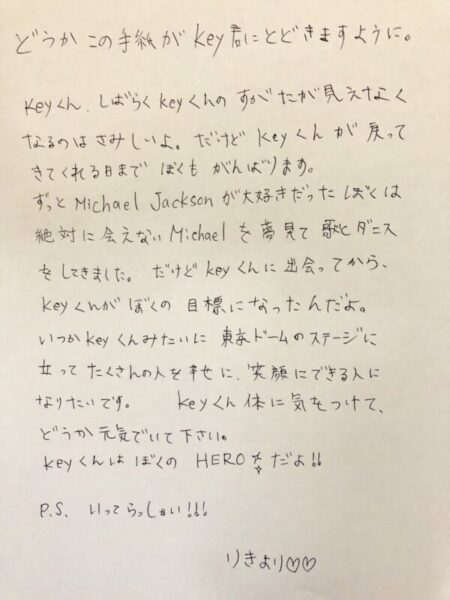 どうか この手紙が Key君にとどきますように。
Keyくん、しばらく Keyくんの すがたが見えなく
なるのは さみしいよ。だけど Keyくんが 戻って
きてくれる日まで ぼくも がんばります。
ずっと Michael Jackson が大好きだった ぼくは
絶対に会えない Michael を 夢見て 歌とダンス
をしてきました。だけど Keyくんに 出会ってから、
Keyくんが ぼくの 目標になったんだよ。
いつか Keyくんみたいに 東京ドームのステージに
立って たくさんの人を幸せに、笑顔にできる人に
なりたいです。 Keyくん 体に気をつけて、
どうか 元気でいて下さい。
Keyくんは ぼくの HERO だよ!!
P.S. いってらっしゃい!!!
りきより♡♡